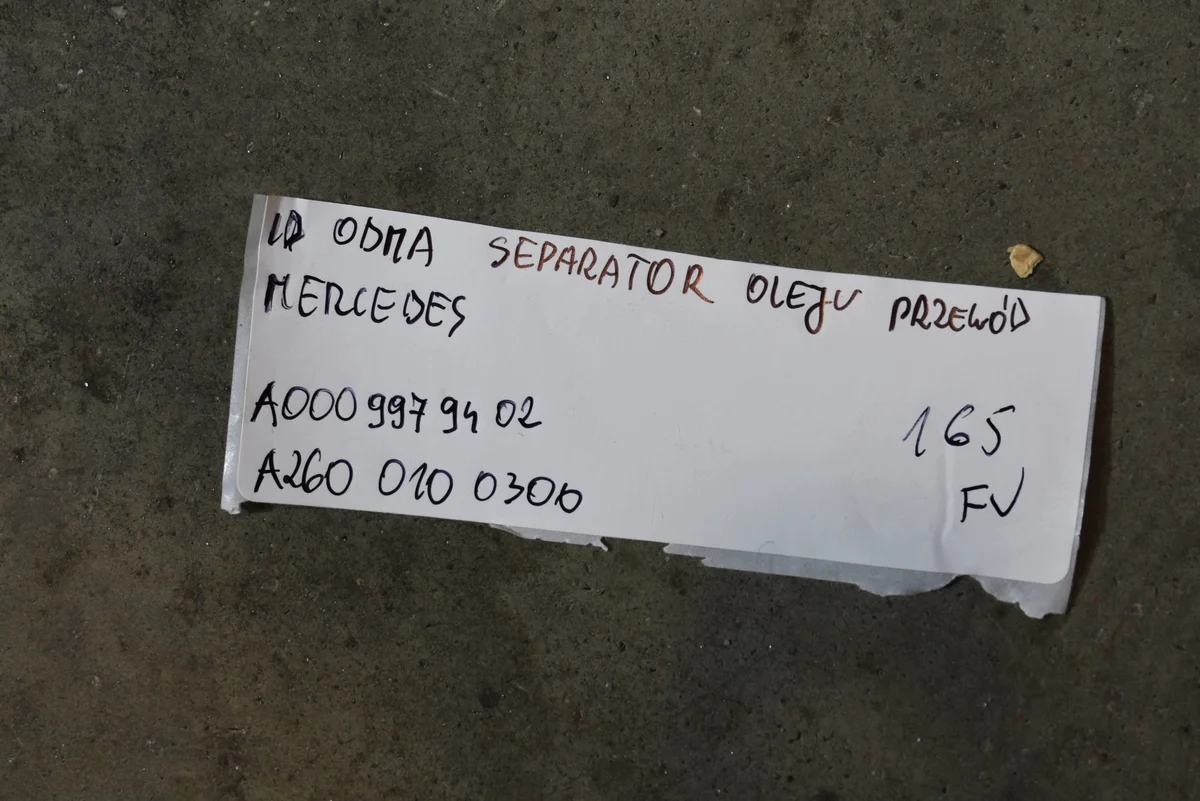 ODMA SEPARATOR OLEJU PRZEWÓD
MERCEDES
A000 997 94 02
165
A260 010 0300
FV